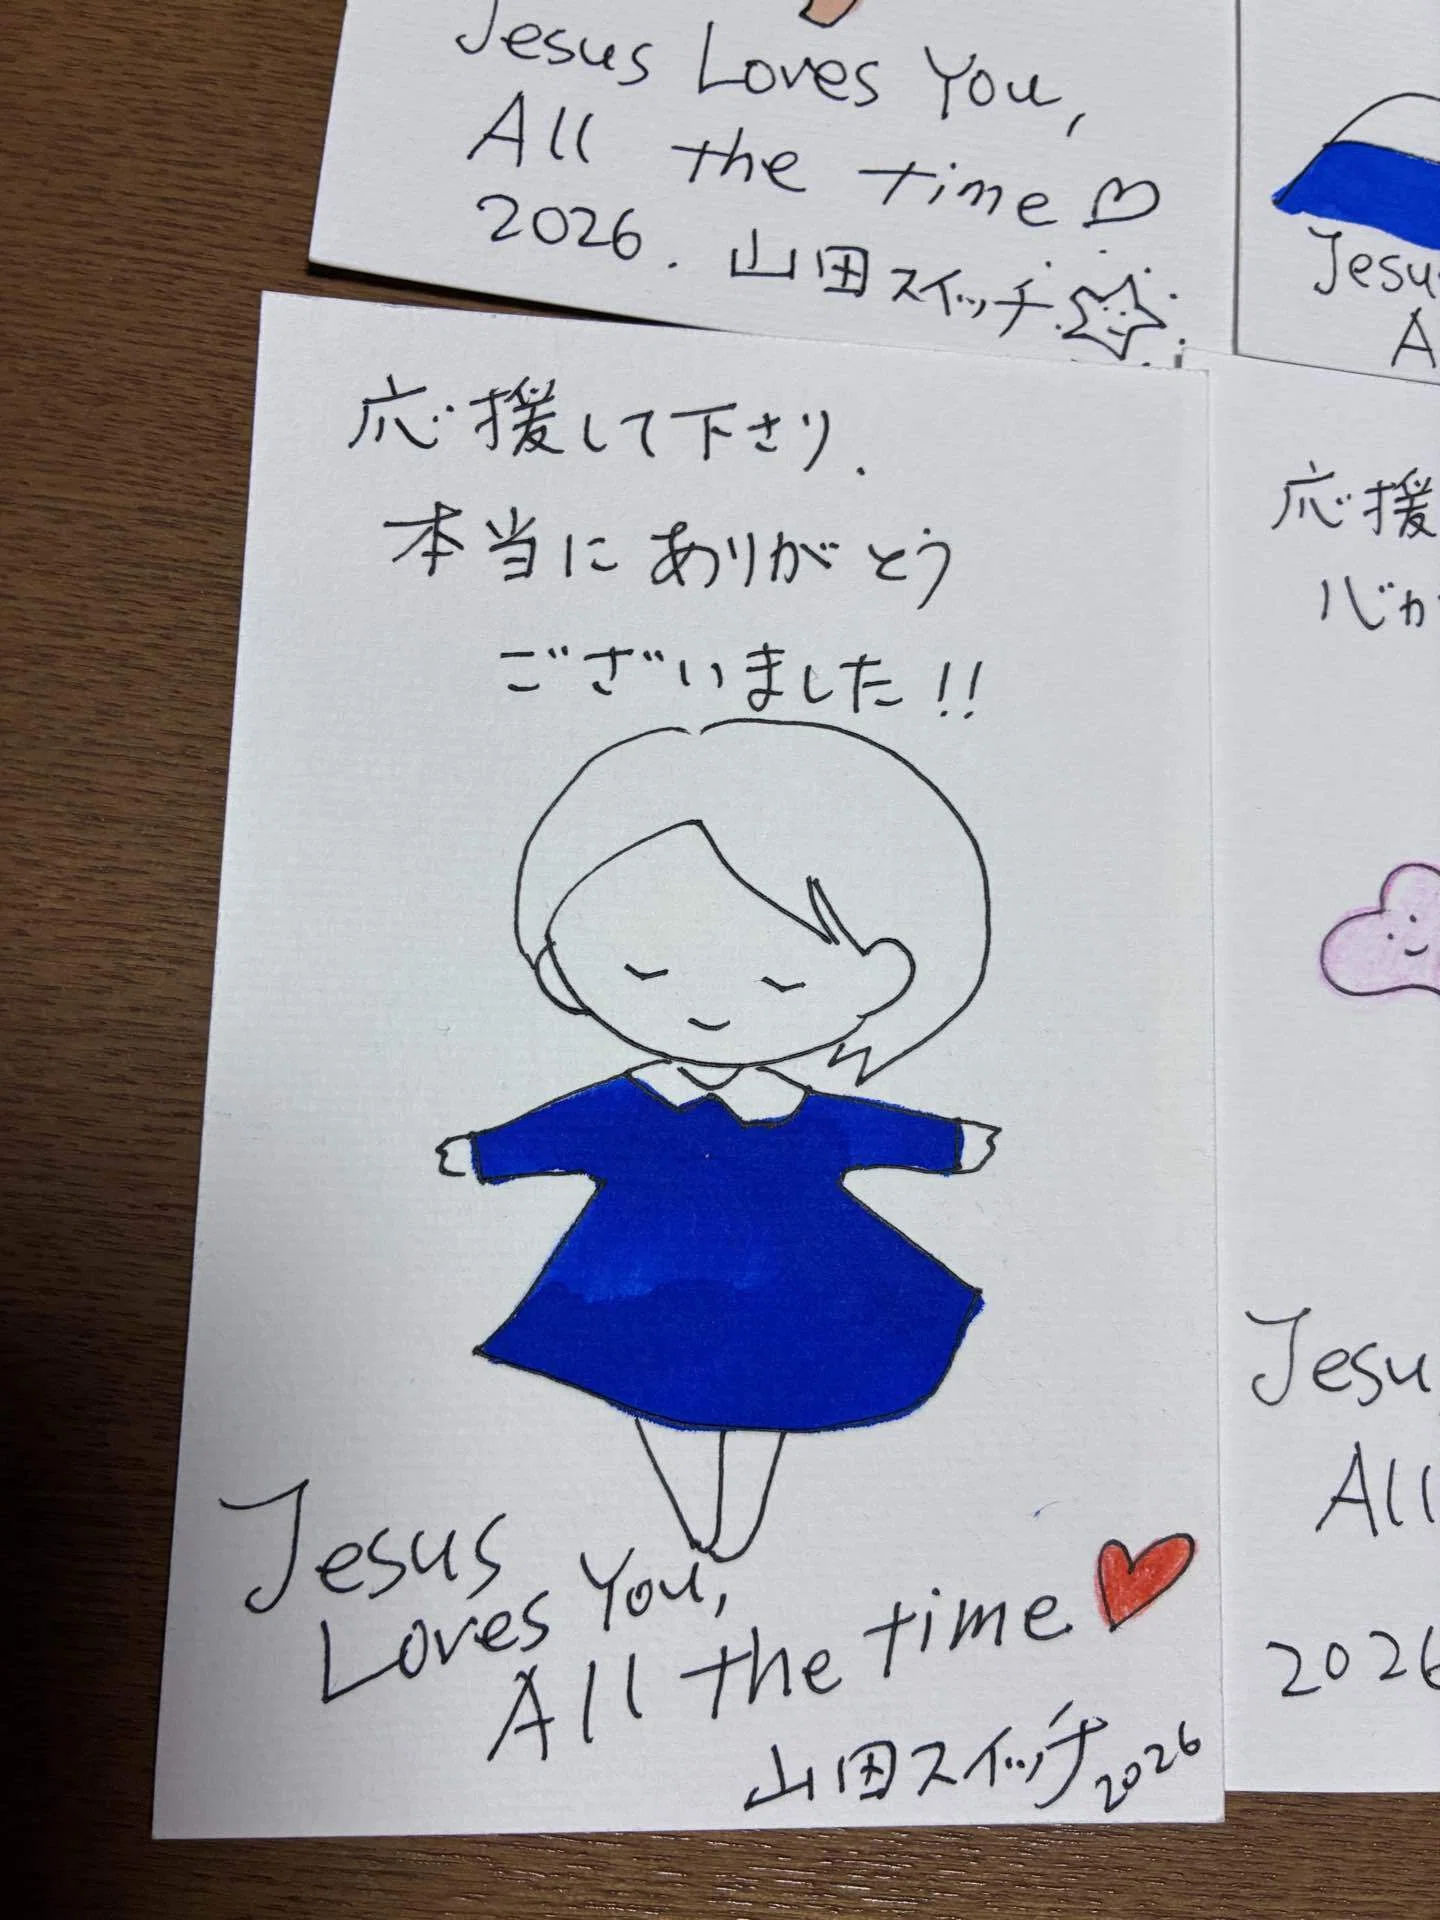 Jesus Loves You,
All the time
2026. 山田スイッチ
Jesu
A
応援して下さり.
本当にありがとう
ございました!!
Jesus
Loves You,
All the time
山田スイッチ 2026
応援
心か
Jesu
All
2026